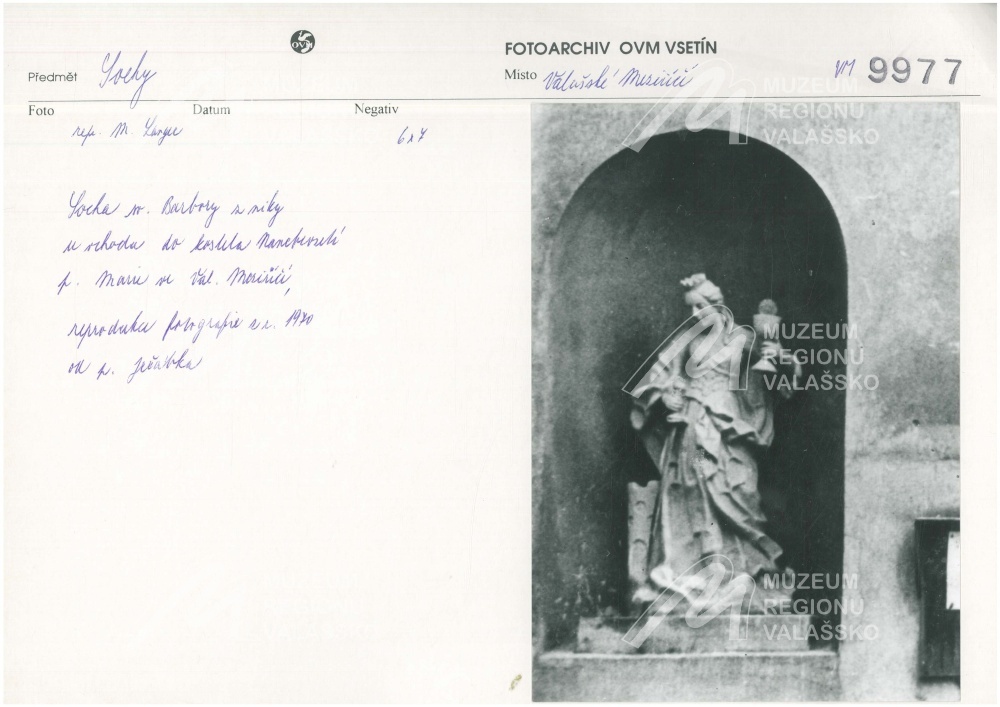 OVM
FOTOARCHIV OVM VSETÍN
Předmět Sochy
Místo Valašské Meziříčí
VM 9977
Foto Datum Negativ
rep. M. Langer
6x7
Socha sv. Barbory z niky
u vchodu do kostela Nanebevzetí
p. Marie ve Val. Meziříčí,
reprodukce fotografie z r. 1970
od p. Jeřábka
MUZEUM
REGIONU
VALAŠSKO
MUZEUM
REGIONU
VALAŠSKO
MUZEUM
REGIONU
VALAŠSKO